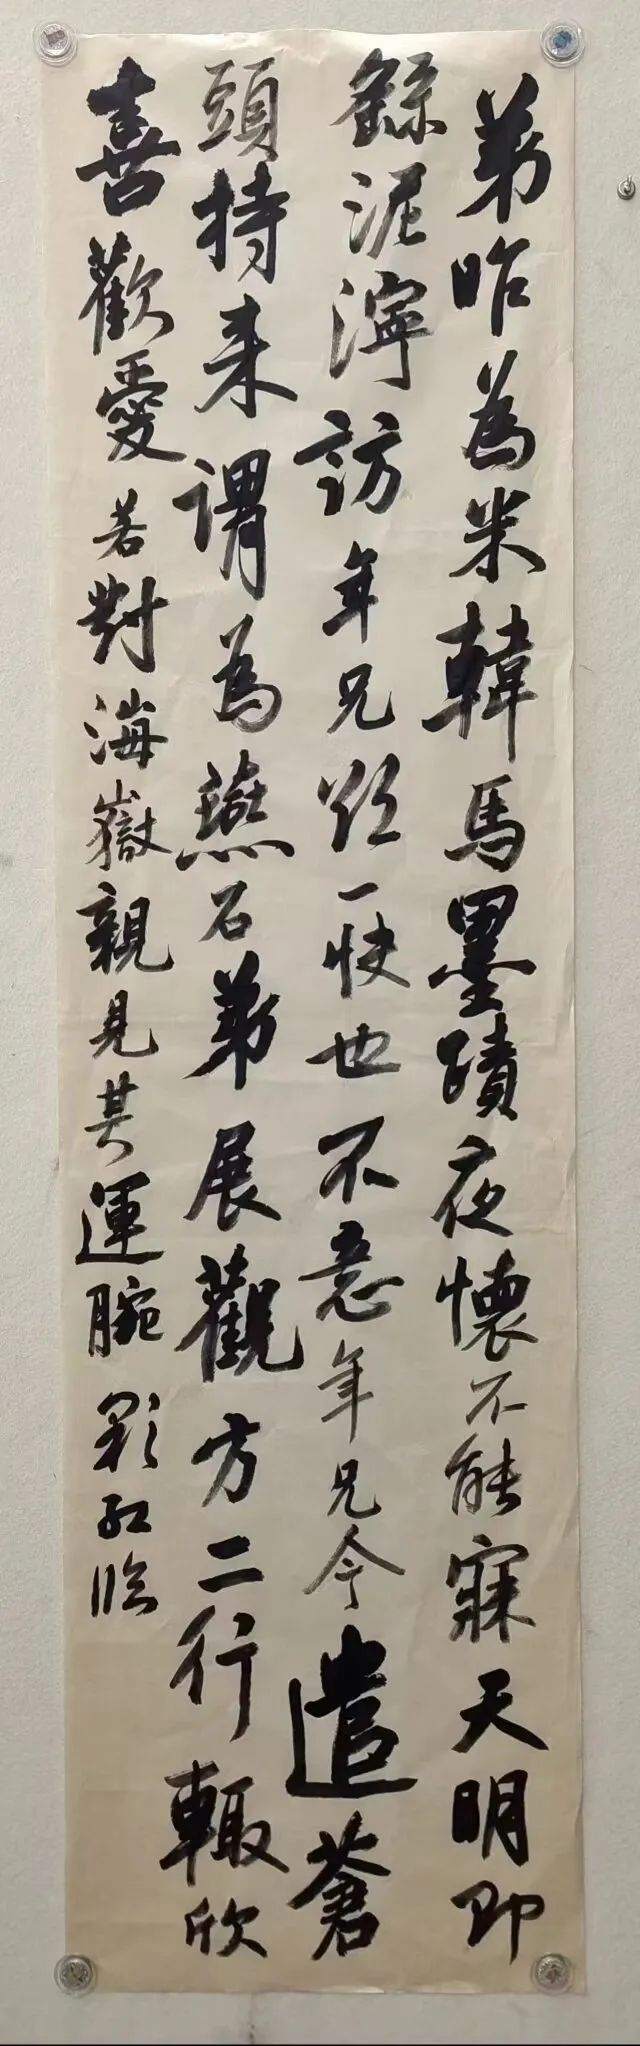 弟昨為米韓馬墨蹟夜懷不能寐天明即
繇泥濘訪年兄欲一快也不意年兄今遣蒼
頭持来謂為燕石弟展觀方二行輙欣
喜歡愛若對海嶽親見其運腕 彩紅臨